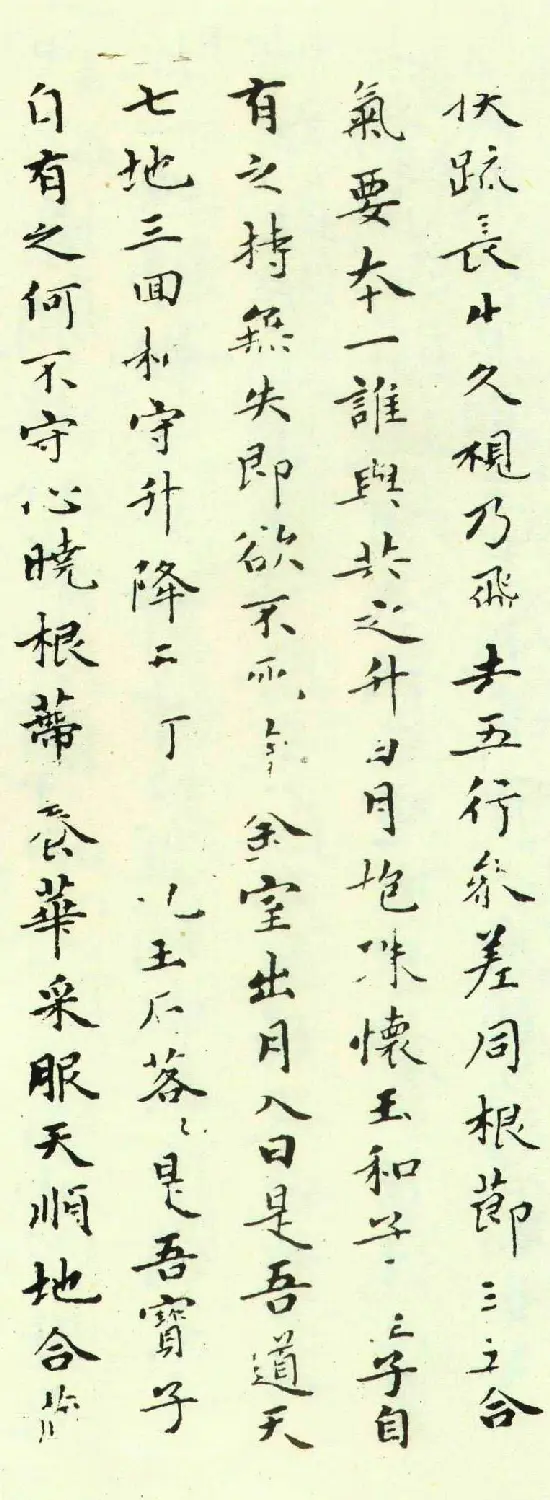 伏疏長生久視乃飛去五行參差同根節三五合
氣要本一誰與共之升日月抱珠懷玉和子室子自
有之持無失即欲不死金室出月入日是吾道天
七地三回相守升降五丁玉石落〻是吾寶子
自有之何不守心曉根蔕養華采服天順地合